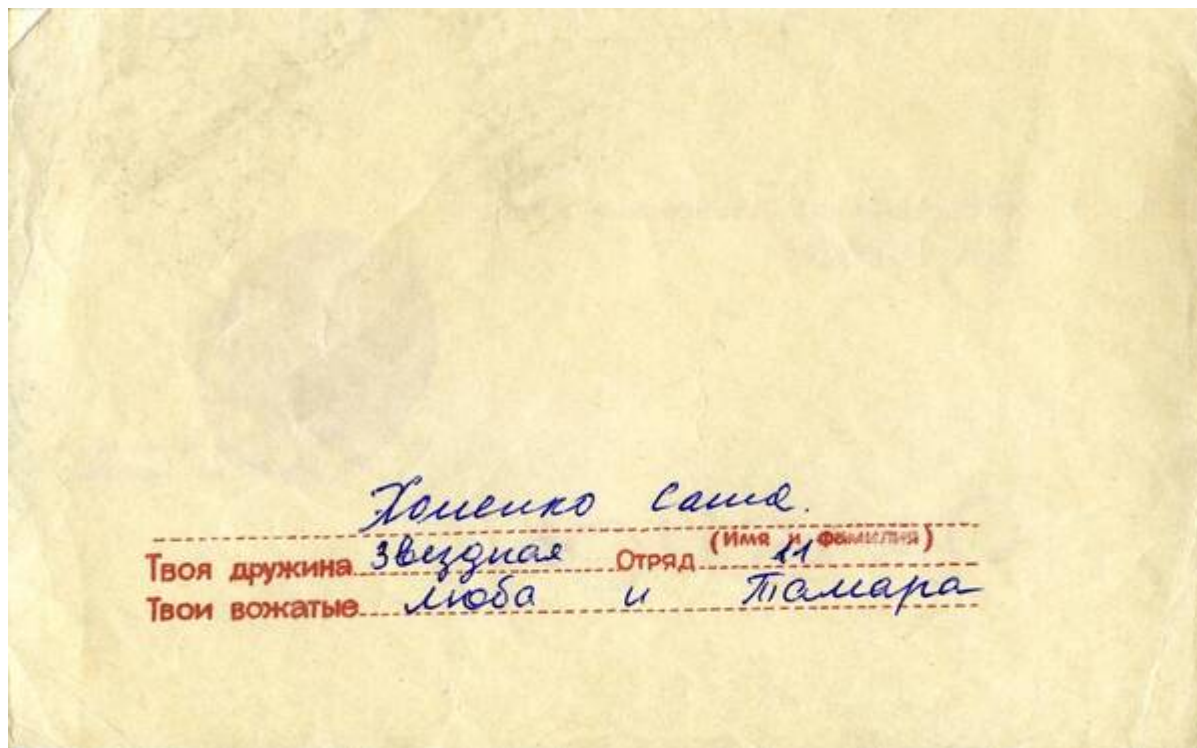 Хоменко Саша.
(Имя и фамилия)
Твоя дружина Звездная Отряд 11
Твои вожатые Люба и Тамара